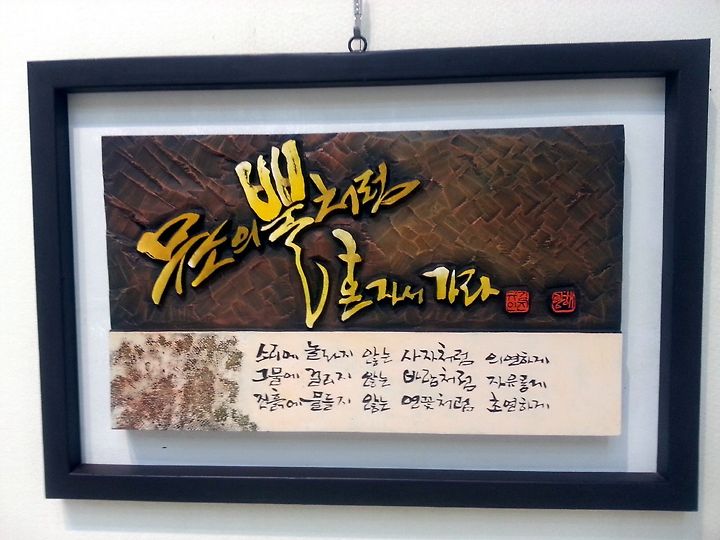 무소의 뿔처럼
혼자서 가라
소리에 놀라지 않는 사자처럼 의연하게
그물에 걸리지 않는 바람처럼 자유롭게
진흙에 물들지 않는 연꽃처럼 초연하게